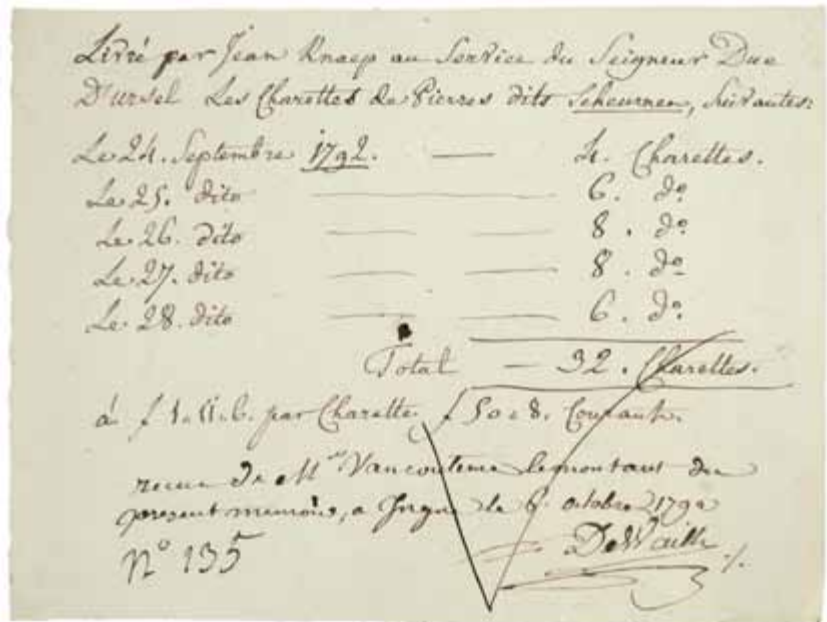 Livré par Jean Knaep au Service du Seigneur Duc
D'ursel Les Charettes de Pierres dits Scheurnen, Suivantes:
Le 24. Septembre 1792. — 4. Charettes.
Le 25. dito — 6. do
Le 26. dito — — 8. do
Le 27. dito — — 8. do
Le 28. dito — — 6. do
Total — 32. Charettes.
á f 1.11.6. par Charette. f 50 " 8. Courant.
recu De Mr le montant du
present memoire, a le 6. octobre 1792
No 135 DeWaille